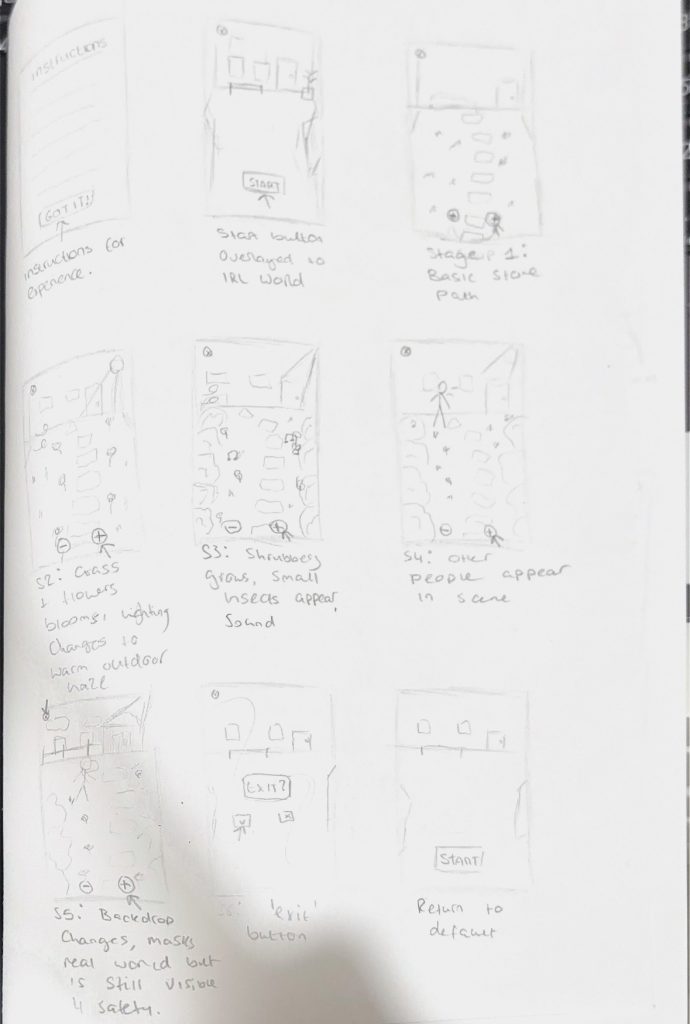 Instructions
GOT IT!
Instructions for
experience.
START
Start button
Overlayed to
IRL World
Stage 1:
Basic Stone
Path
S2: Grass
& flowers
blooms, lighting
Changes to
warm outdoor
haze
S3: Shrubbery
grows, small
insects appear,
Sound
S4: Other
people appear
in scene
S5: Backdrop
Changes, masks
real world but
is still visible
4 safety.
EXIT?
'exit'
button
START!
Return to
default